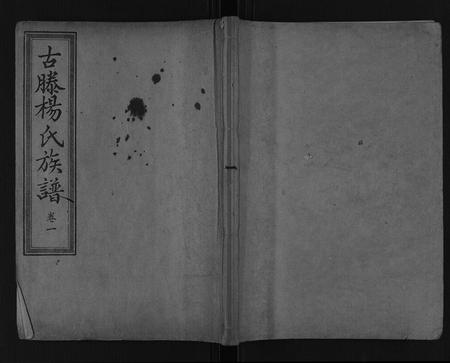 古滕楊氏族譜 卷一